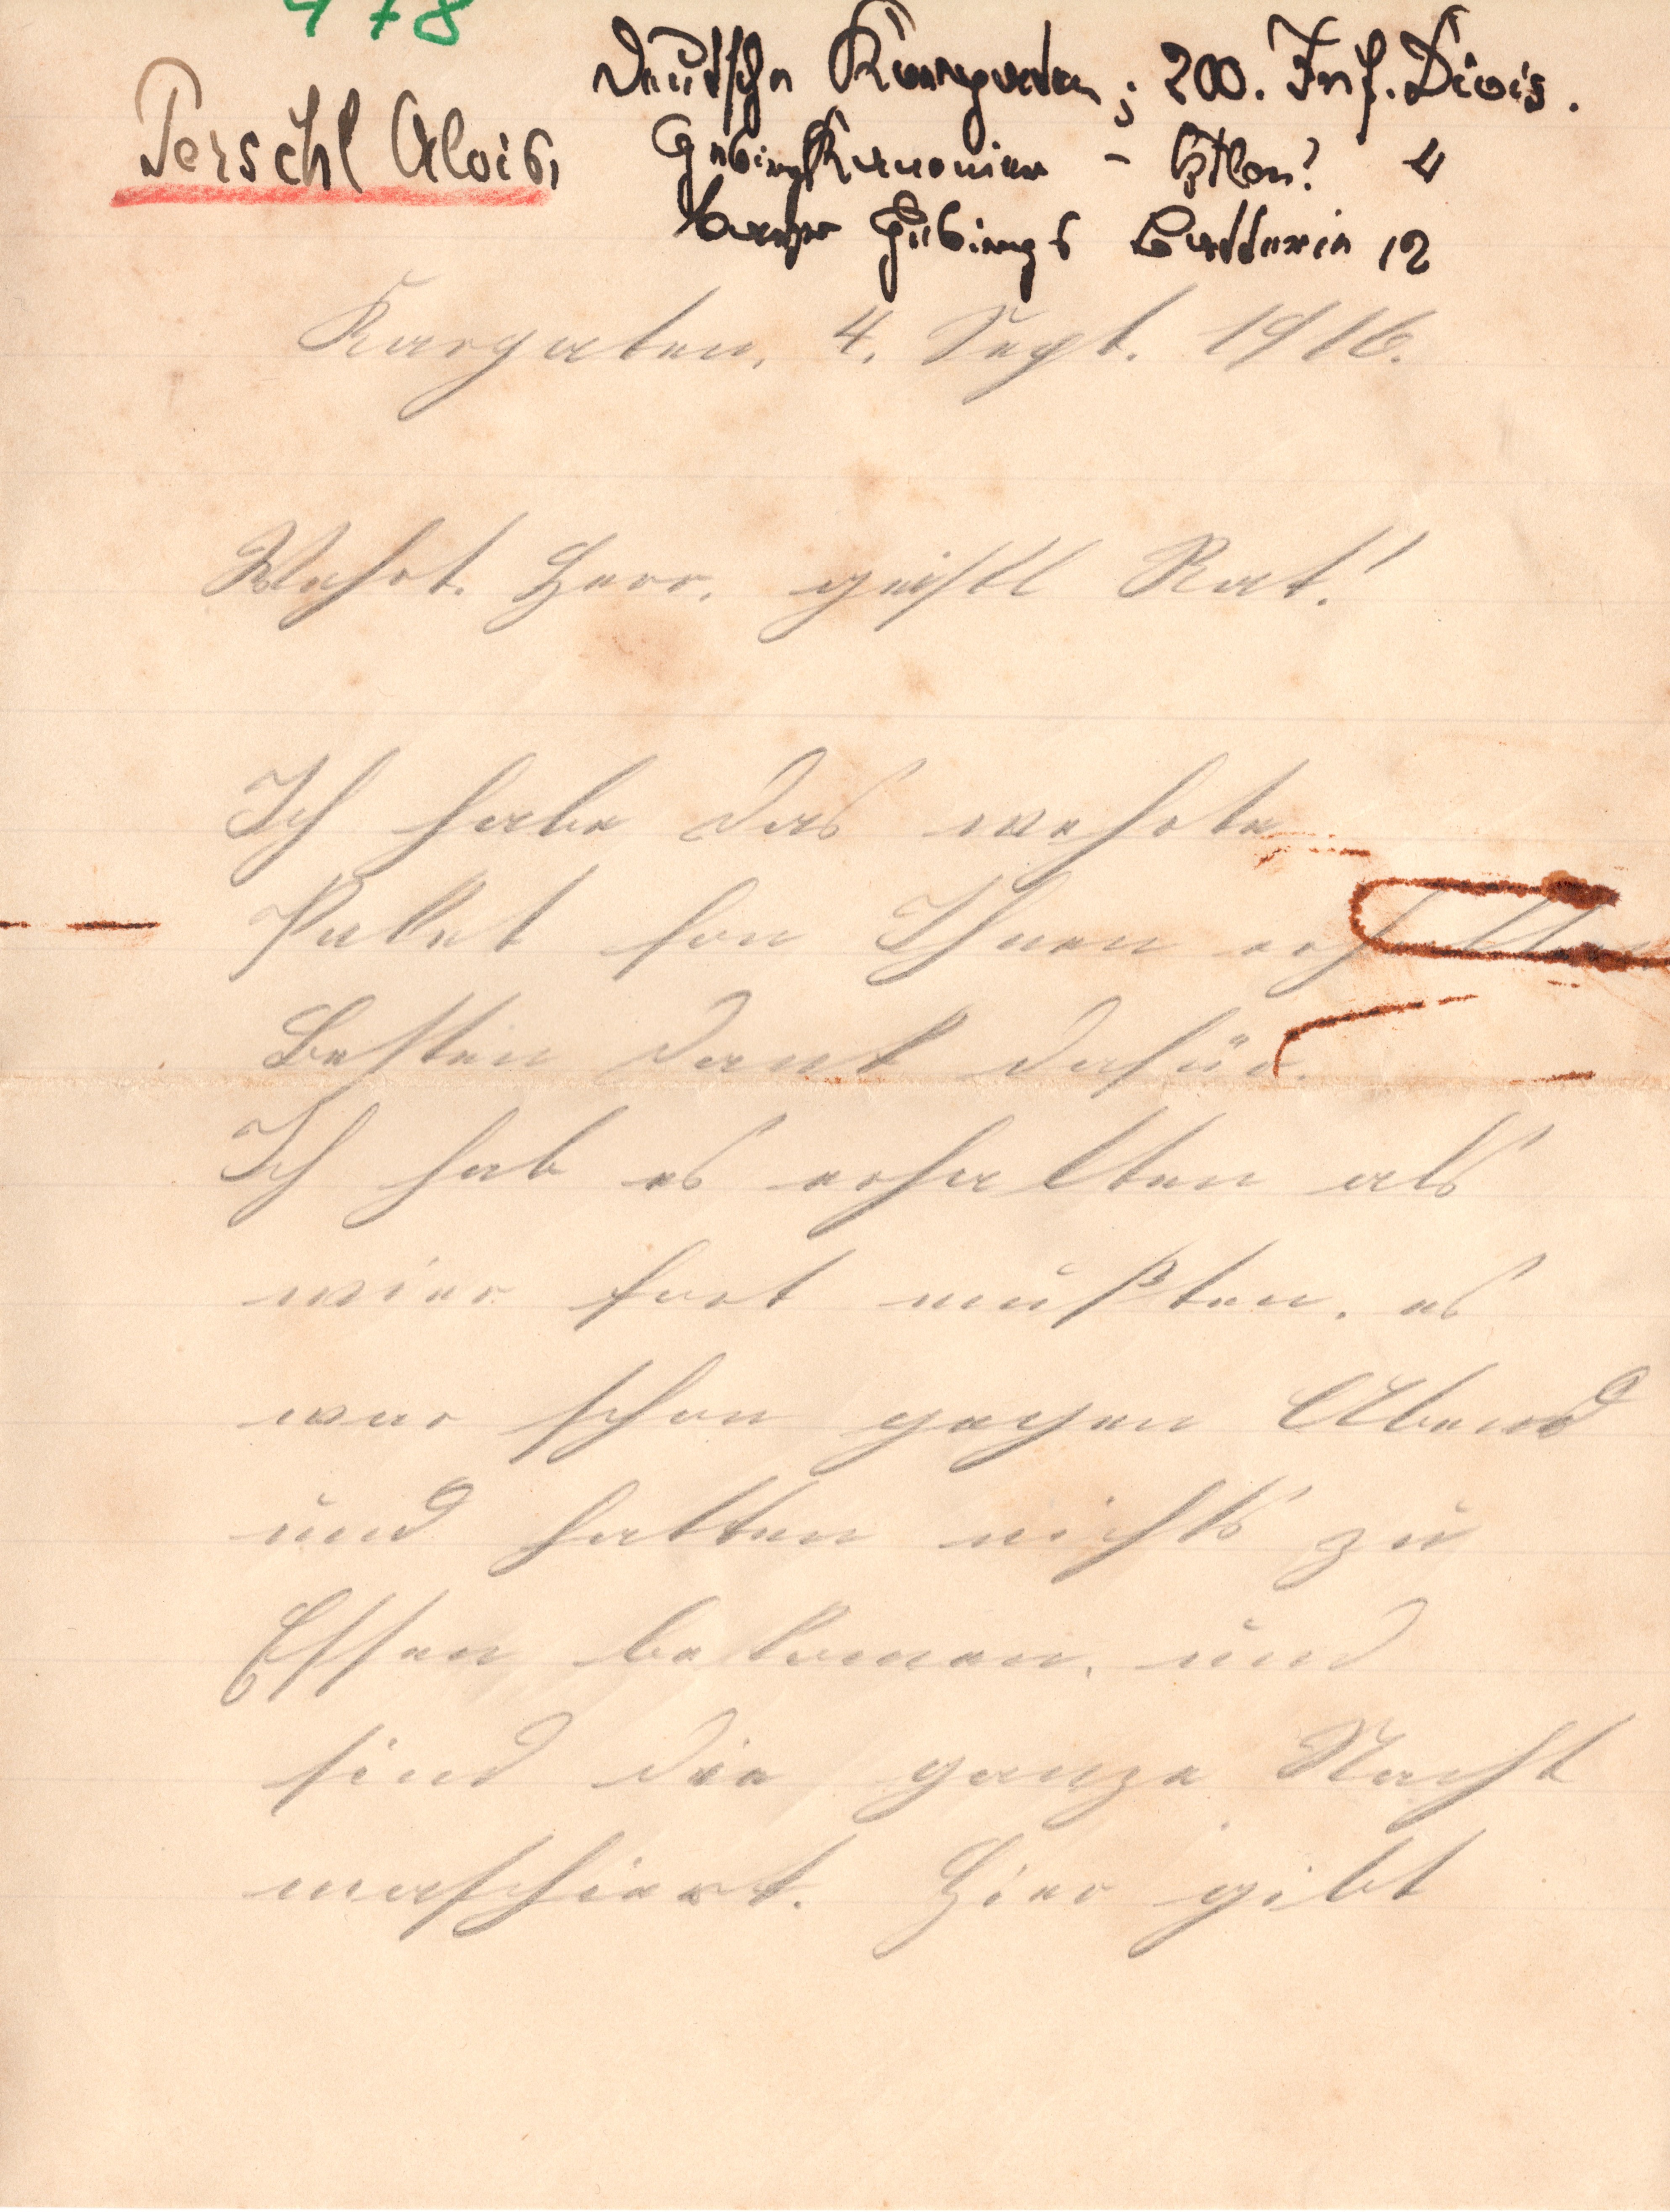 478
Perschl Alois,
Deutsche Karpaten; 200. Inf. Divis.
Gebirgskanonier - Btlon? 4
bayr Gebirgs Batterie 12
Kargaten, 4. Sept. 1916.
Wehrt. Herr. geistl Rat!
Ich habe das wehrte
Paket fon Ihnen erhalten
Besten Dank dafür.
Ich hab es erhalten als
wier fort mußten. es
war schon gegen Abend
und hatten nichts zu
Essen bekomen. und
sind die ganze Nacht
maschiert. Hier gibt